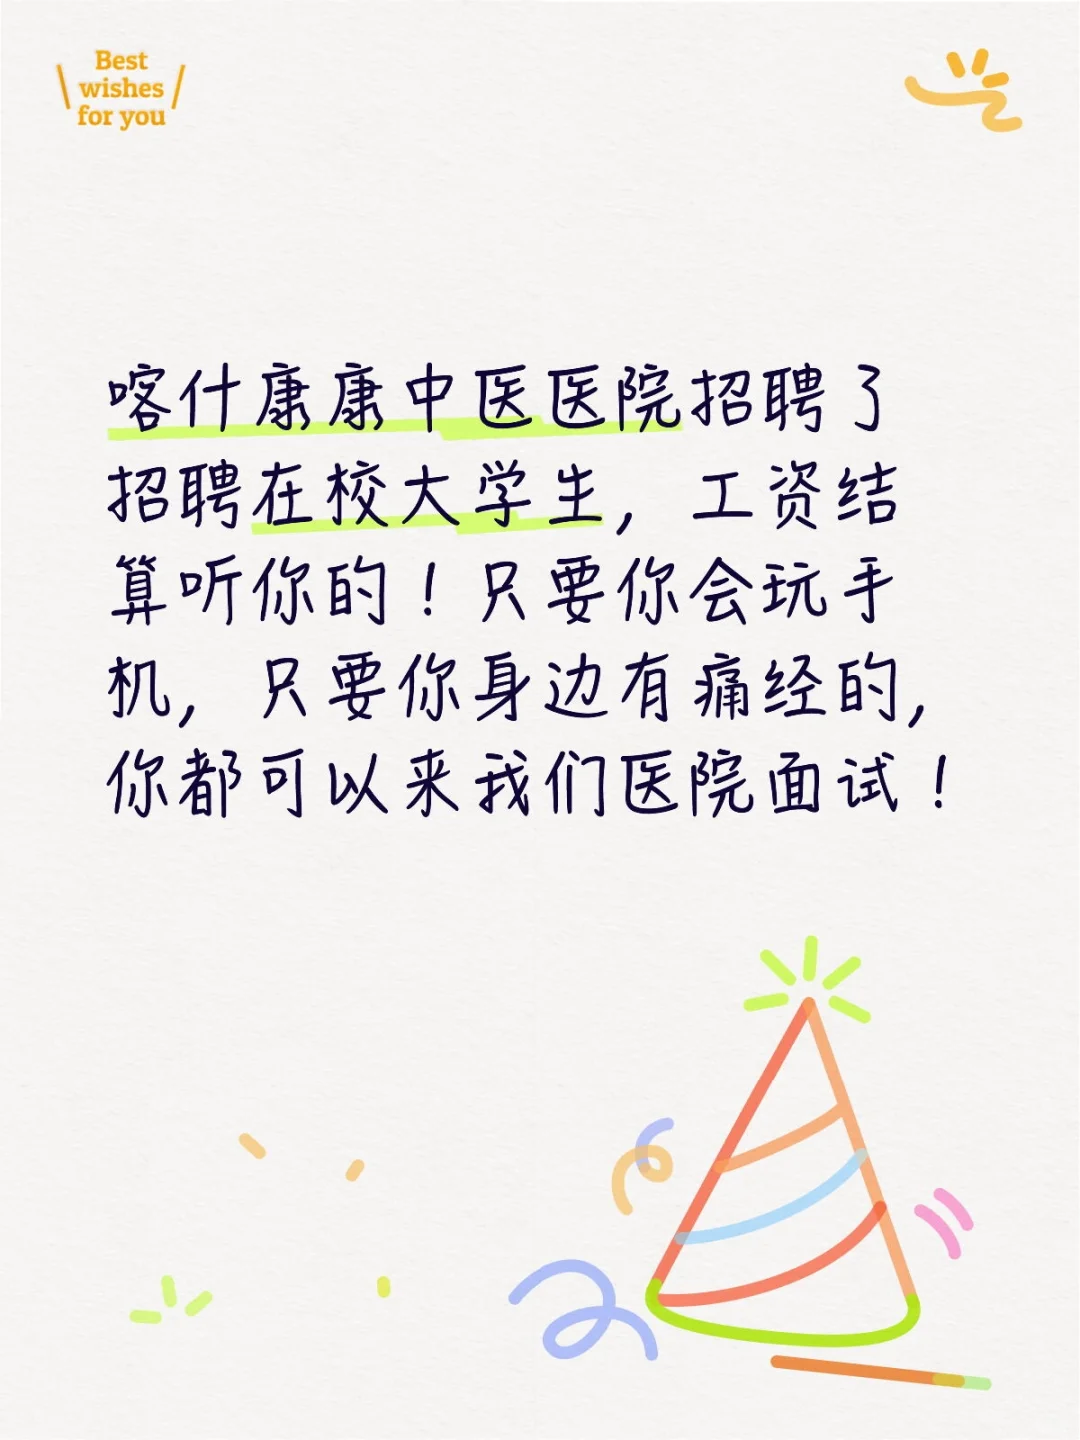 Best
wishes
for you
喀什康康中医医院招聘了
招聘在校大学生，工资结
算听你的！只要你会玩手
机，只要你身边有痛经的，
你都可以来我们医院面试！